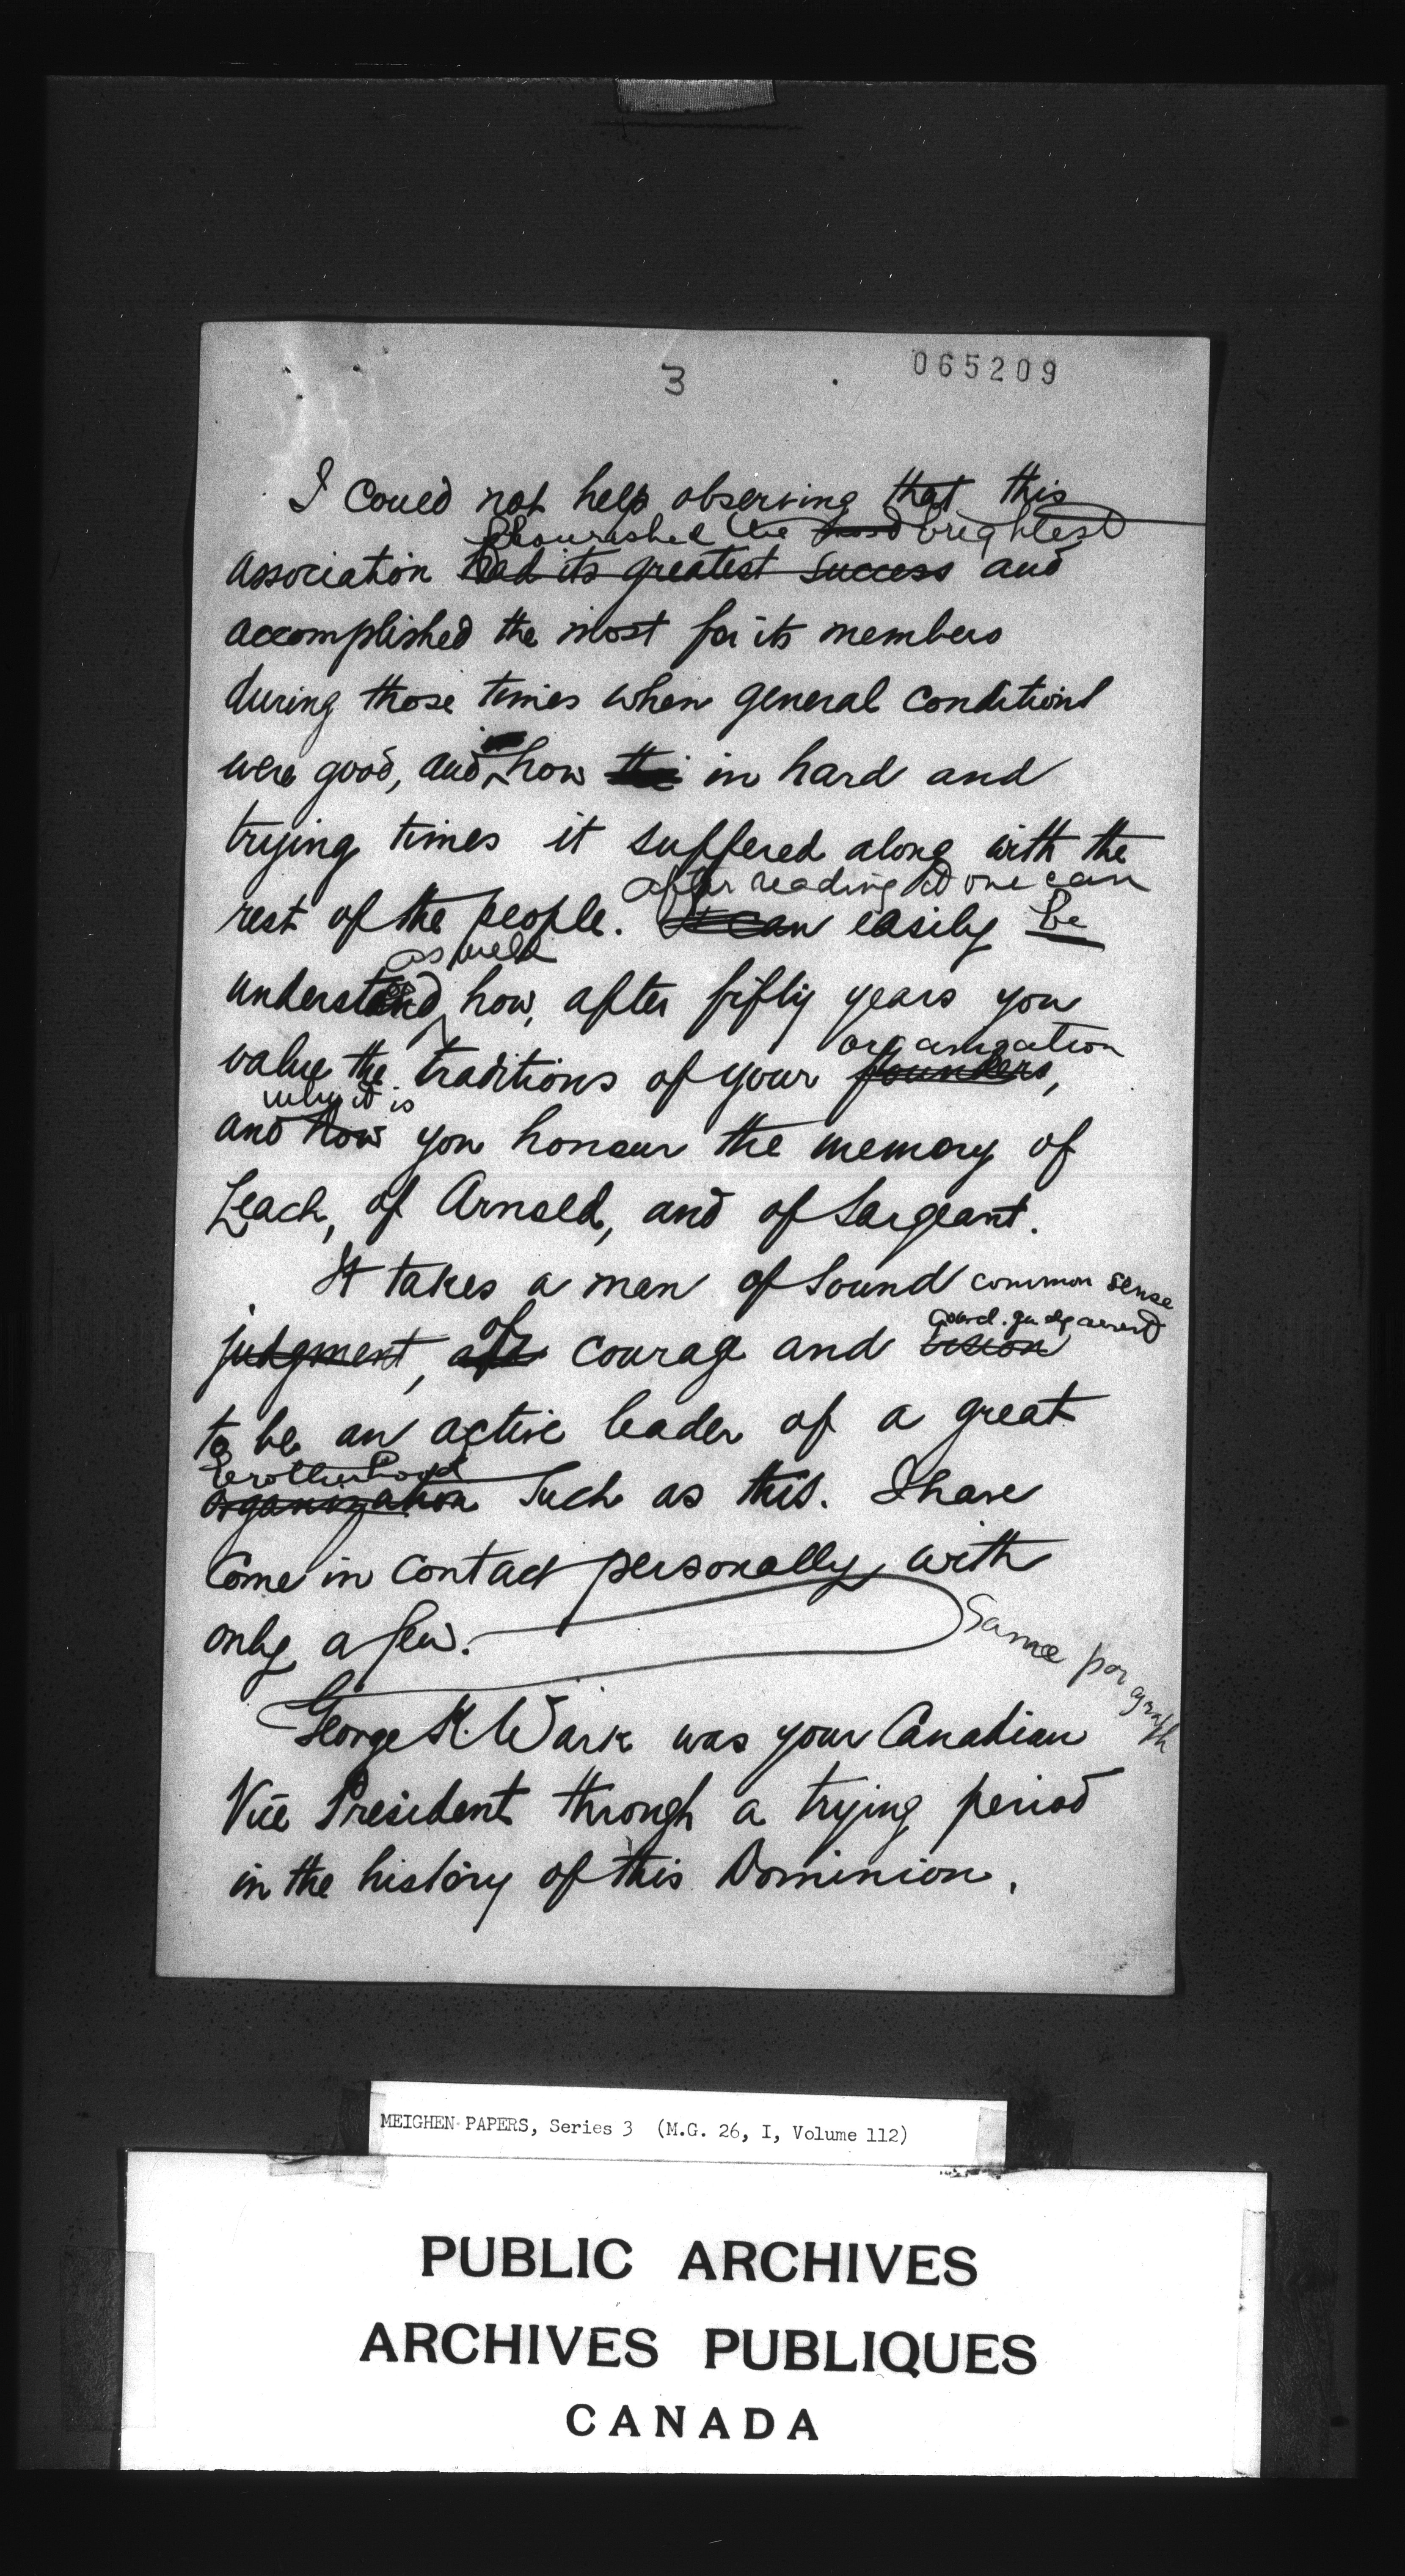 3
065209
I could not help observing that this
flourished the most brightest
association had its greatest success and
accomplished the most for its members
during those times when general conditions
were good, and how the in hard and
trying times it suffered along with the
after reading it one can
rest of the people. It can easily be
as well
understand how, after fifty years you
organization
value the traditions of your founders,
why it is
and how you honour the memory of
Leach, of Arnold, and of Sargeant.
It takes a man of sound common sense
of good judgment
judgment, courage and vision
to be an active leader of a great
brotherhood
organization such as this. I have
come in contact personally with
only a few.
Same paragraph
George K. Wark was your Canadian
Vice President through a trying period
in the history of this Dominion.
MEIGHEN PAPERS, Series 3 (M.G. 26, I, Volume 112)
PUBLIC ARCHIVES
ARCHIVES PUBLIQUES
CANADA